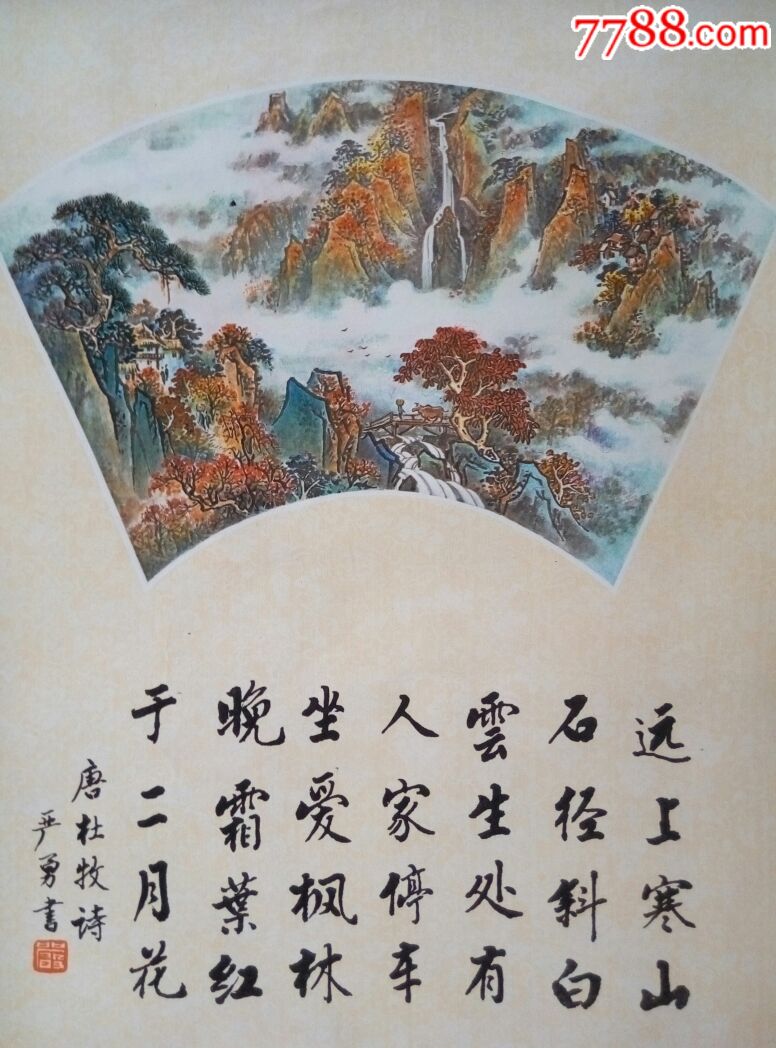 7788.com
远上寒山
石径斜白
雲生处有
人家停车
坐爱枫林
晚霜葉红
于二月花
唐杜牧诗
严勇书